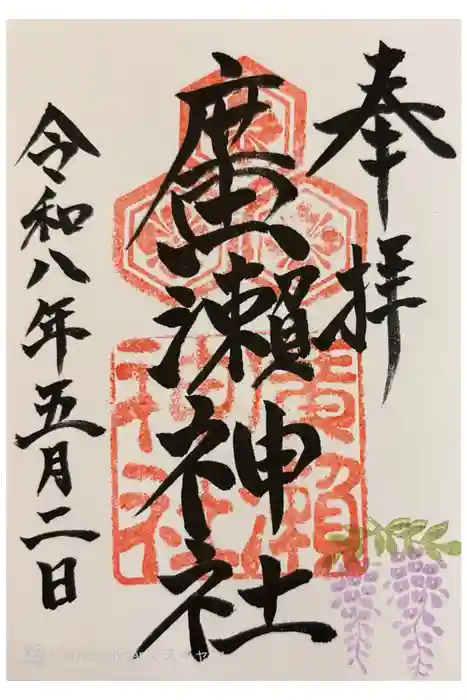 奉拝
廣瀬神社
令和八年五月二日
廣瀬神社